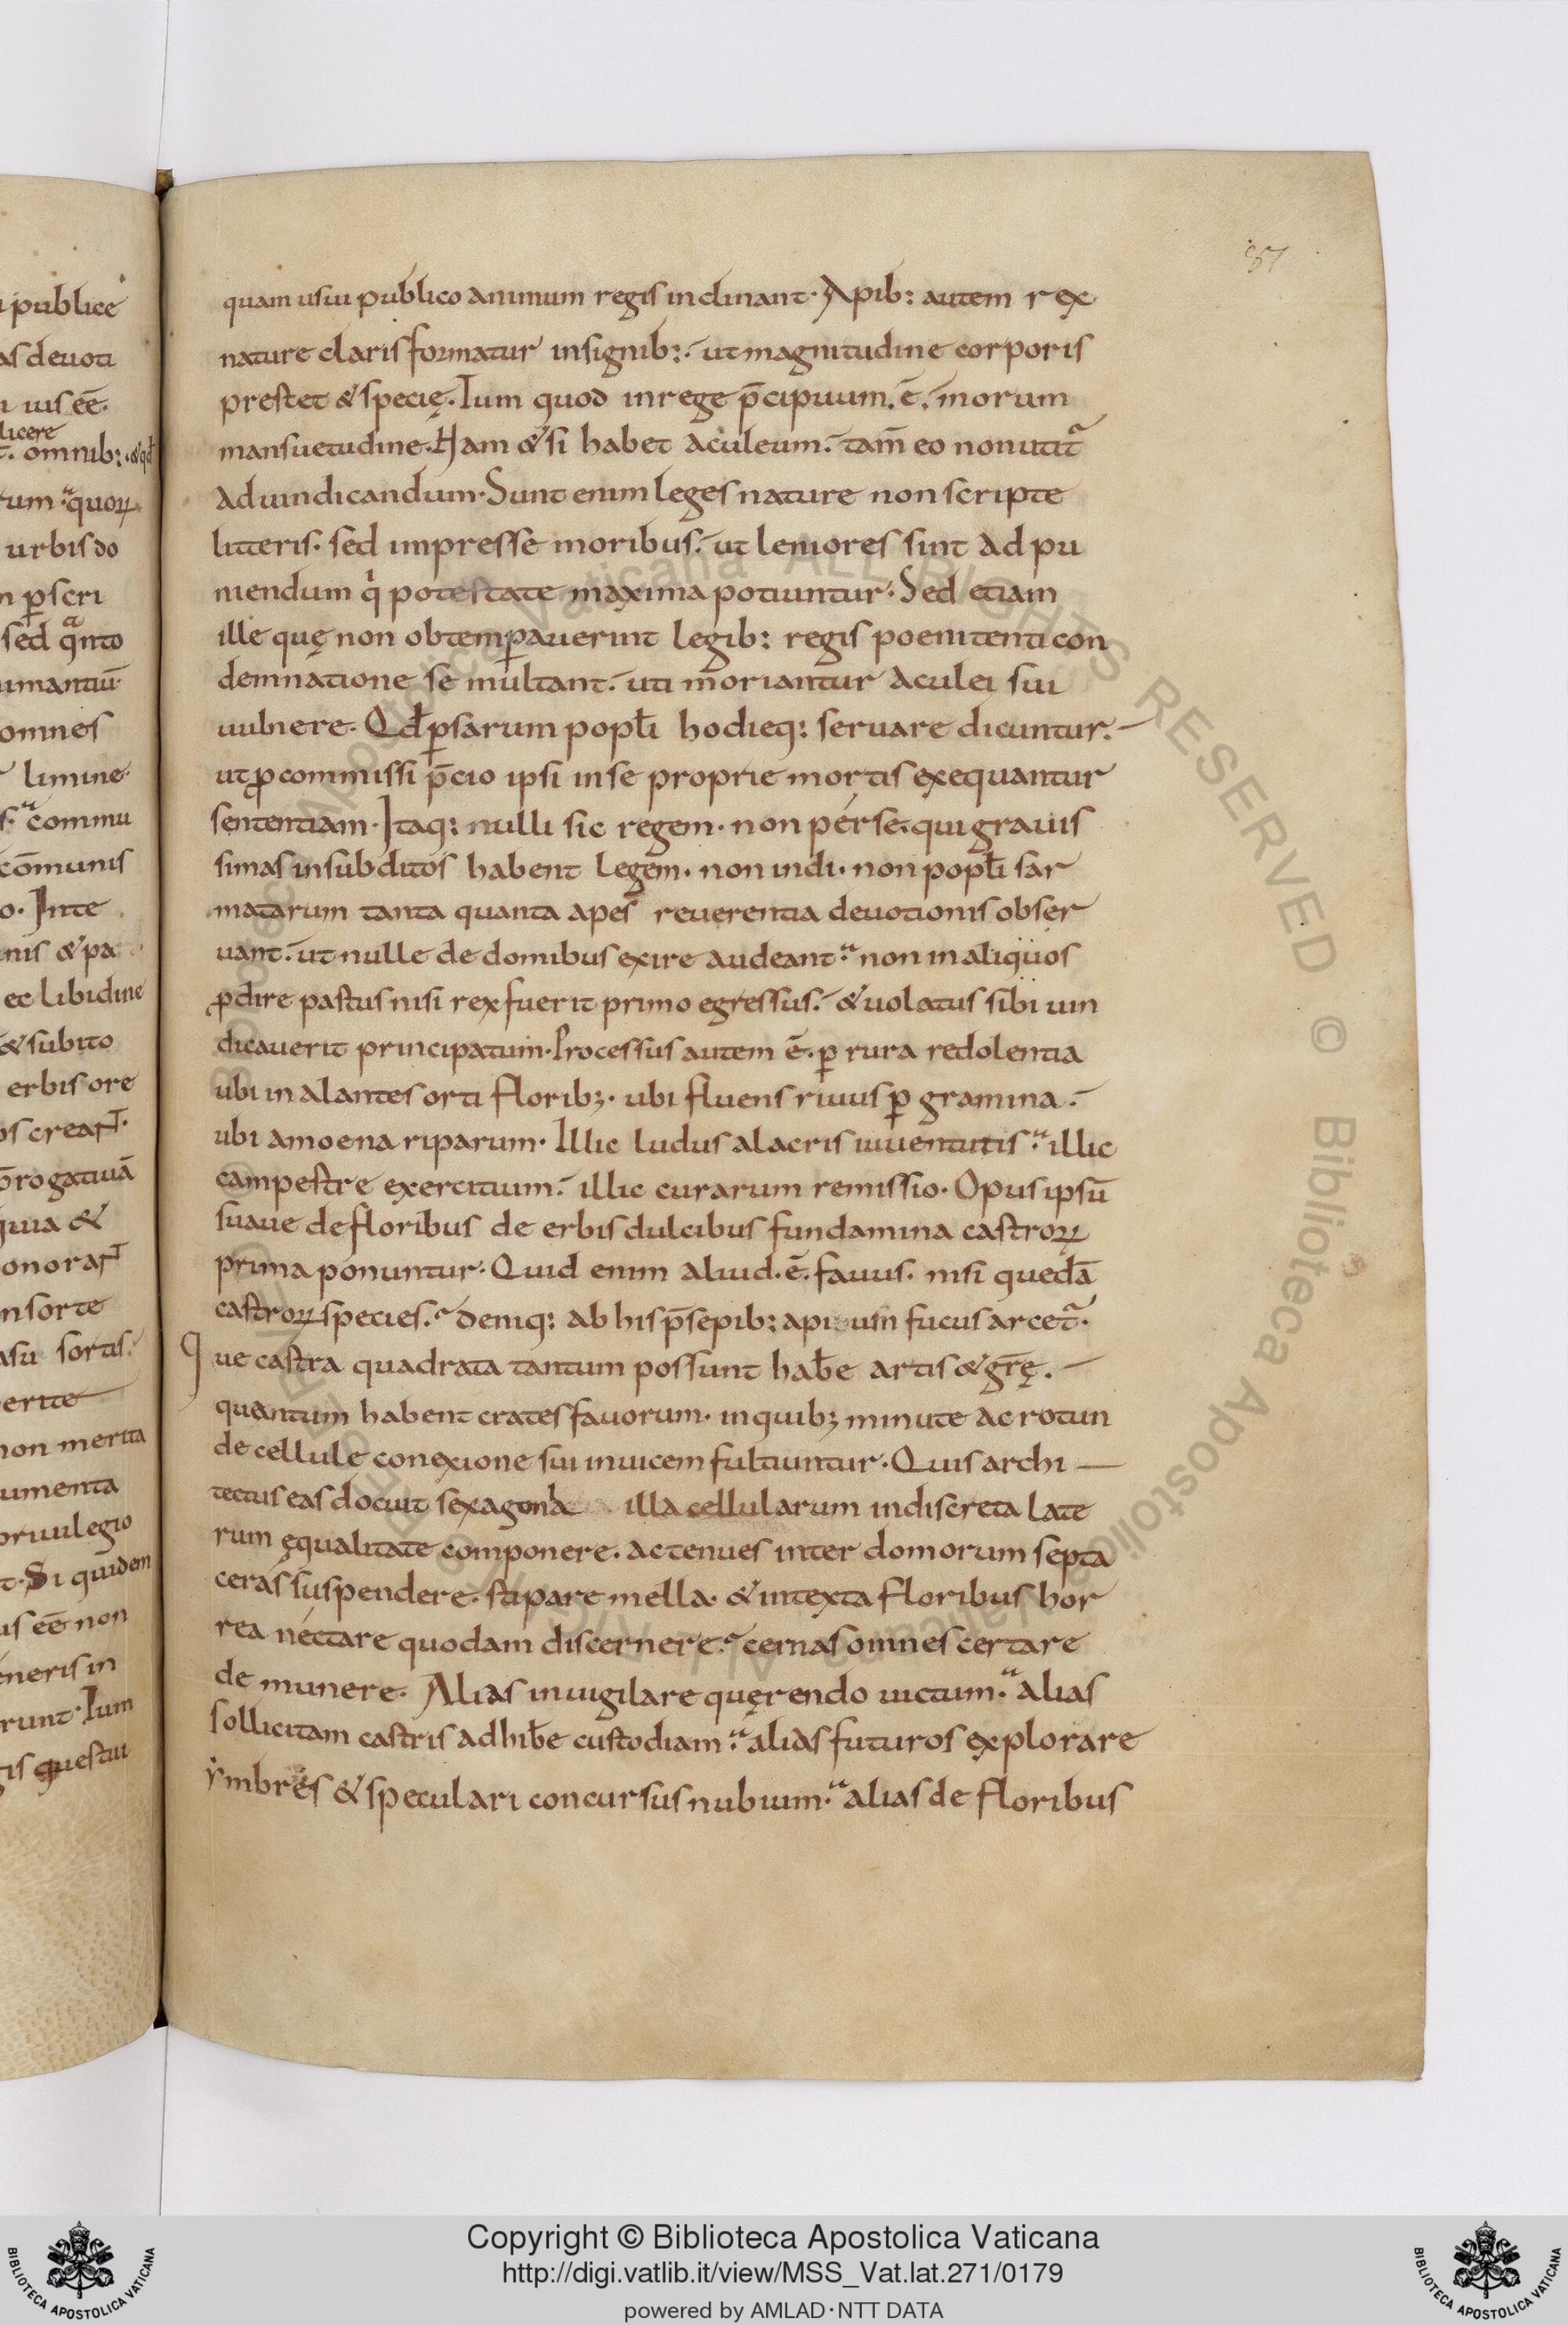 87
quam usui publico animum regis inclinant. Apib: autem rex
nature claris formatur insignib:. ut magnitudine corporis
prestet & specię. Tum quod in rege p̄cipuum. ē. morum
mansuetudine. Nam & si habet aculeum. tam̄ eo non utit̃
ad uindicandum. Sunt enim leges nature non scripte
litteris. sed impresse moribus. ut leniores sint ad pu
niendum qͥ potestate maxima potiuntur. Sed etiam
ille quę non obtemꝑauerint legib: regis poenitenti con
demnatione se multant. uti moriantur aculei sui
uulnere. Qđ ꝑsarum popłi hodieq: seruare dicuntur.
ut ꝓ commissi p̄cio ipsi in se proprie mortis exequantur
sententiam. Itaq: nulli sic regem. non perse. qui grauis
simas in subditos habent legem. non indi. non popłi sar
matarum tanta quanta apes reuerentia deuotionis obser
uant. ut nulle de domibus exire audeant. non in aliquos
ꝓdire pastus nisi rex fuerit primo egressus. & uolatus sibi uin
dicauerit principatum. Processus autem ē. ꝑ rura redolentia
ubi inalantes orti floribꝫ. ubi fluens riuus ꝑ gramina.
ubi amoena riparum. Illic ludus alacris iuuentutis. illic
campestre exercitium. illic curarum remissio. Opus ipsū
suaue de floribus de erbis dulcibus fundamina castroꝝ
prima ponuntur. Quid enim aliud. ē. fauus. nisi quedā
castroꝝ species. Deniq: ab his p̄sepib: apium fucus arcet̃.
Que castra quadrata tantum possunt habe artis & gr̄ę.
quantum habent crates fauorum. in quibꝫ minute ac rotun
de cellule conexione sui inuicem fultiuntur. Quis archi
tectus eas docuit sexagona illa cellularum indiscreta late
rum ęqualitate componere. ac tenues inter domorum septa
ceras suspendere. stipare mella. & intexta floribus hor
rea nectare quodam discernere. cernas omnes certare
de munere. Alias inuigilare quęrendo uictum. alias
sollicitam castris adhibe custodiam. alias futuros explorare
ymbres & speculari concursus nubium. alias de floribus
Copyright © Biblioteca Apostolica Vaticana
http://digi.vatlib.it/view/MSS_Vat.lat.271/0179
powered by AMLAD·NTT DATA
BIBLIOTECA APOSTOLICA VATICANA
BIBLIOTECA APOSTOLICA VATICANA